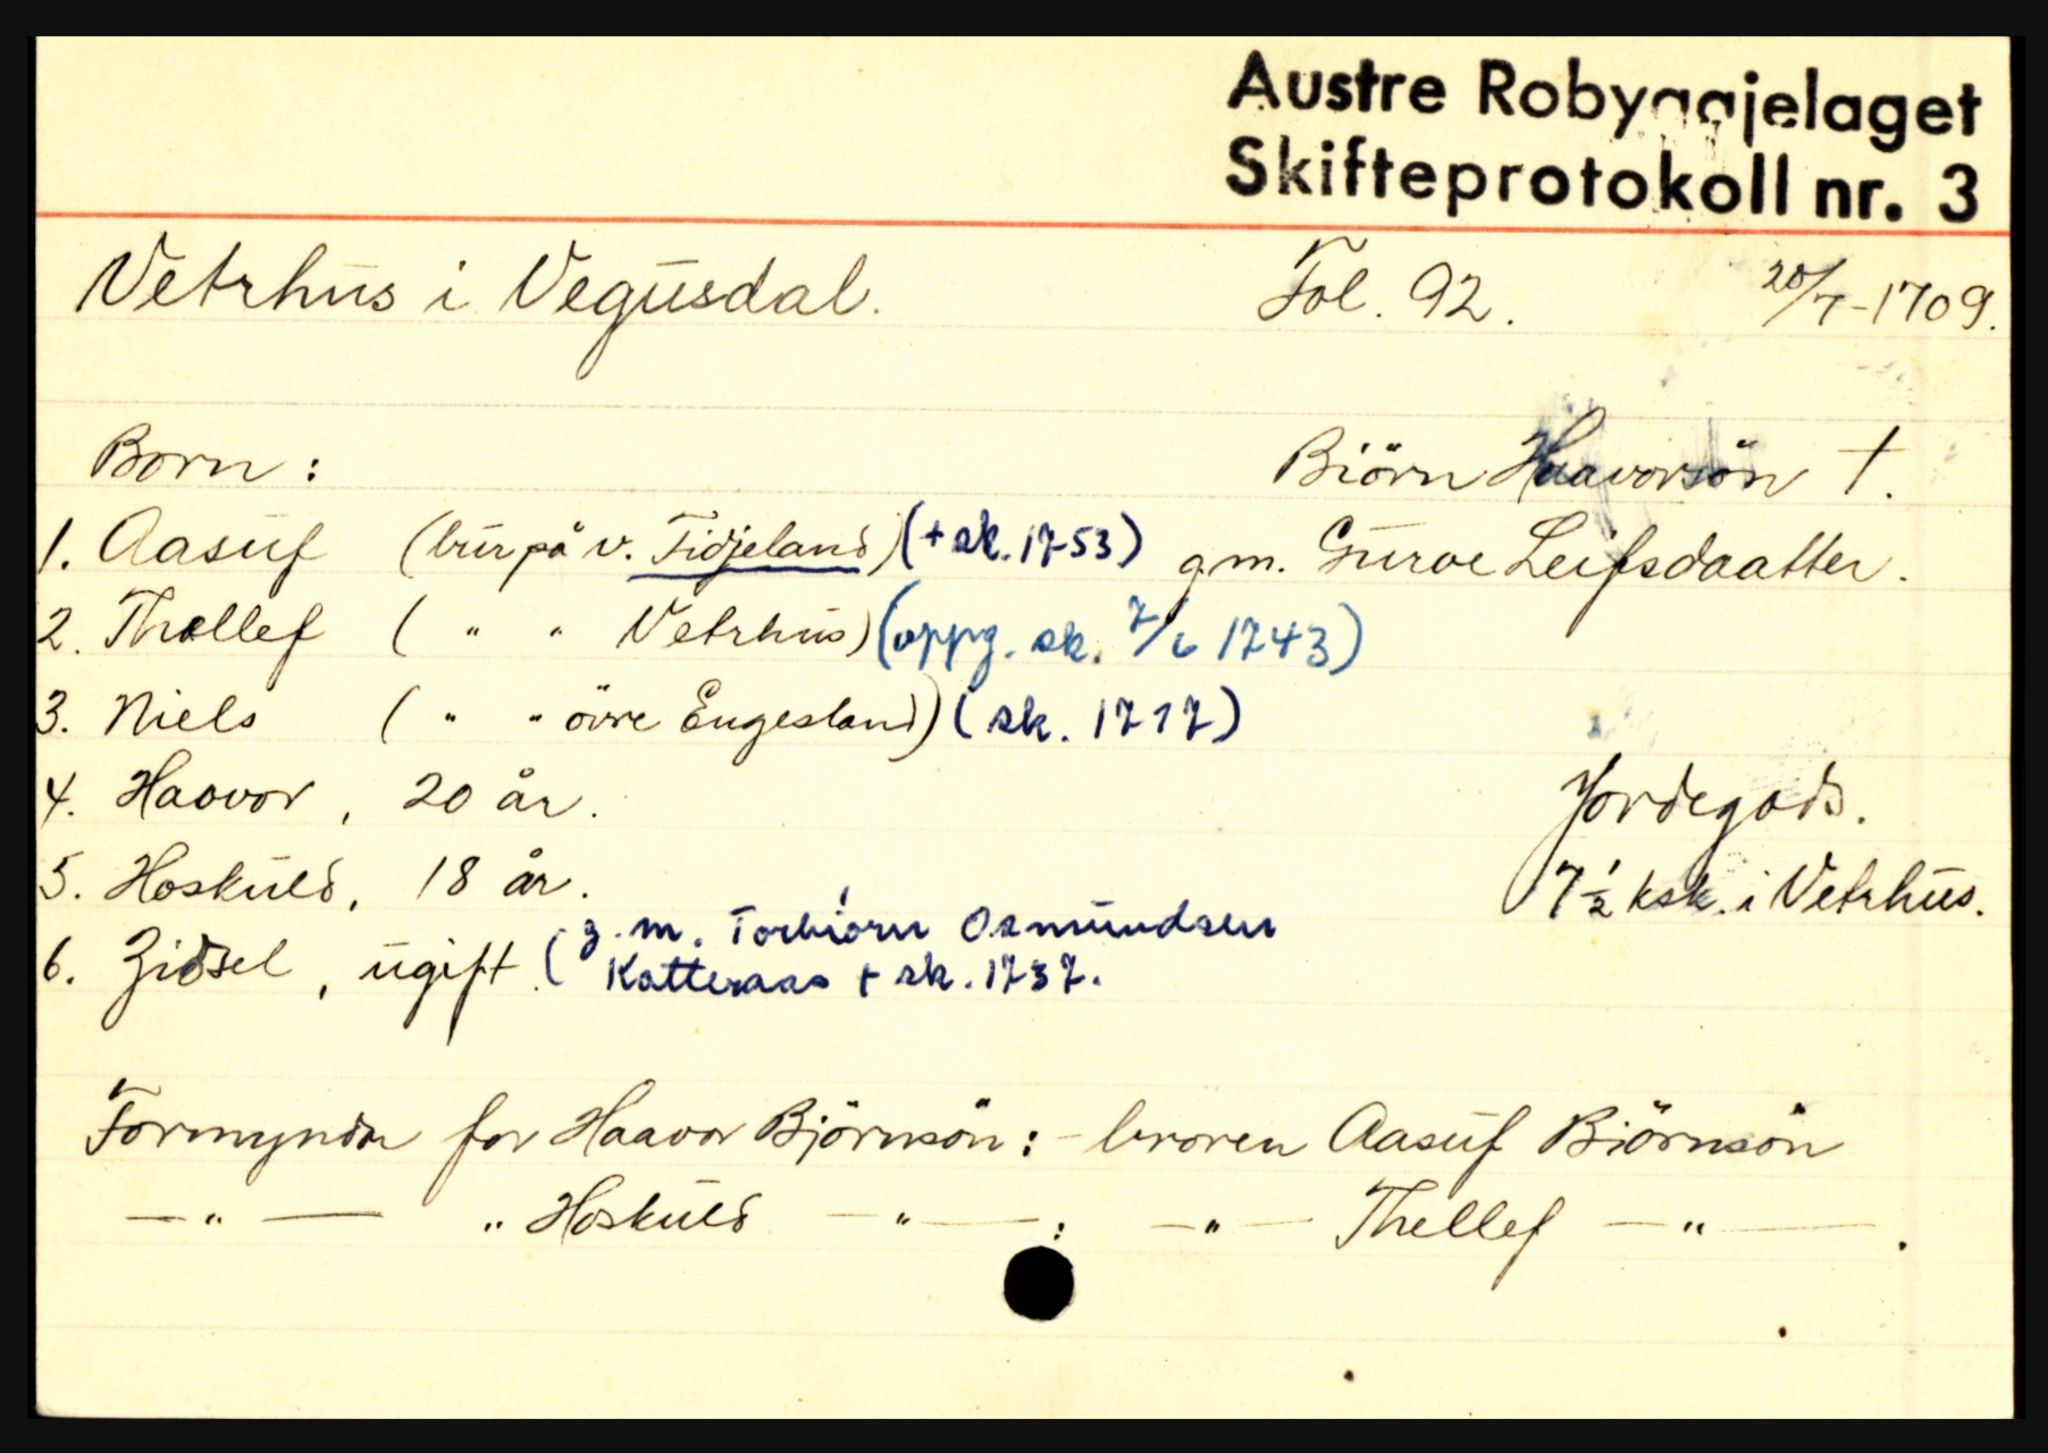 Austre Robyggjelaget
Skifteprotokoll nr. 3
Vetrhus i Vegusdal. Fol. 92. 20/7-1709.
Born: Biörn Haavorsön †.
1. Aasuf (bur på v. Fidjeland) (+ sk. 1753) gm. Guroe Leifsdaatter.
2. Thollef ( " " Vetrhus) (oppg. sk. 7/6 1743)
3. Niels ( " " övre Engesland) (sk. 1717)
4. Haavor, 20 år. Jordegods.
5. Hoskuld, 18 år. 7 1/2 ksk. i Vetrhus.
6. Zidsel, ugift. (g.m. Torbiörn Osmundsen
Katteraas + sk. 1737.
Formyndar for Haavor Björnsön: - broren Aasuf Biörnsön
— " — " Hoskuld — " — : — " — Thellef — " — .